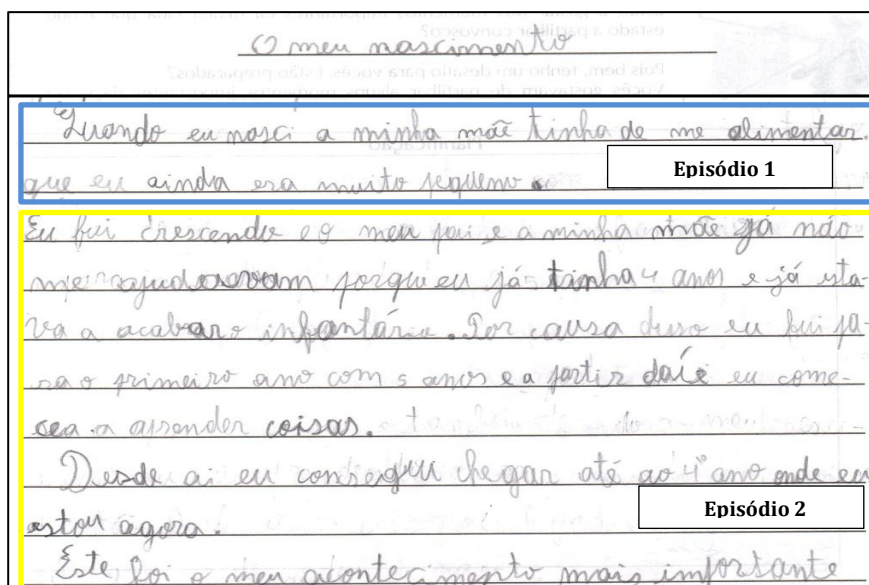 O meu nascimento
Quando eu nasci a minha mãe tinha de me alimentar.
Episódio 1
que eu ainda era muito pequeno.
Eu fui crescendo e o meu pai e a minha mãe já não
me ajudavam porqu eu já tinha 4 anos e já esta-
va a acabar o infantário. Por causa disso eu fui pa-
ra o primeiro ano com 5 anos e a partir daí e eu come-
cei a aprender coisas.
Desde ai eu consegui chegar até ao 4º ano onde eu
Episódio 2
estou agora.
Este foi o meu acontecimento mais importante